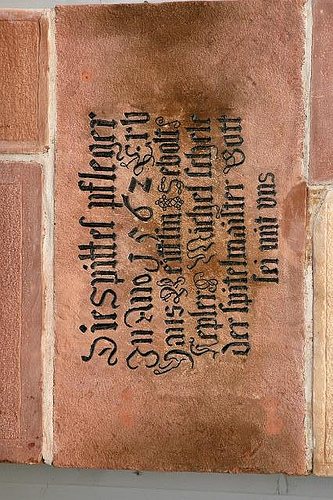 Die spittel pfleger
Jn Año 1562 Erb
Haus Merttin Sebolt
Kepler Michel schelt
der spitelmaister Gott
sei mit vns